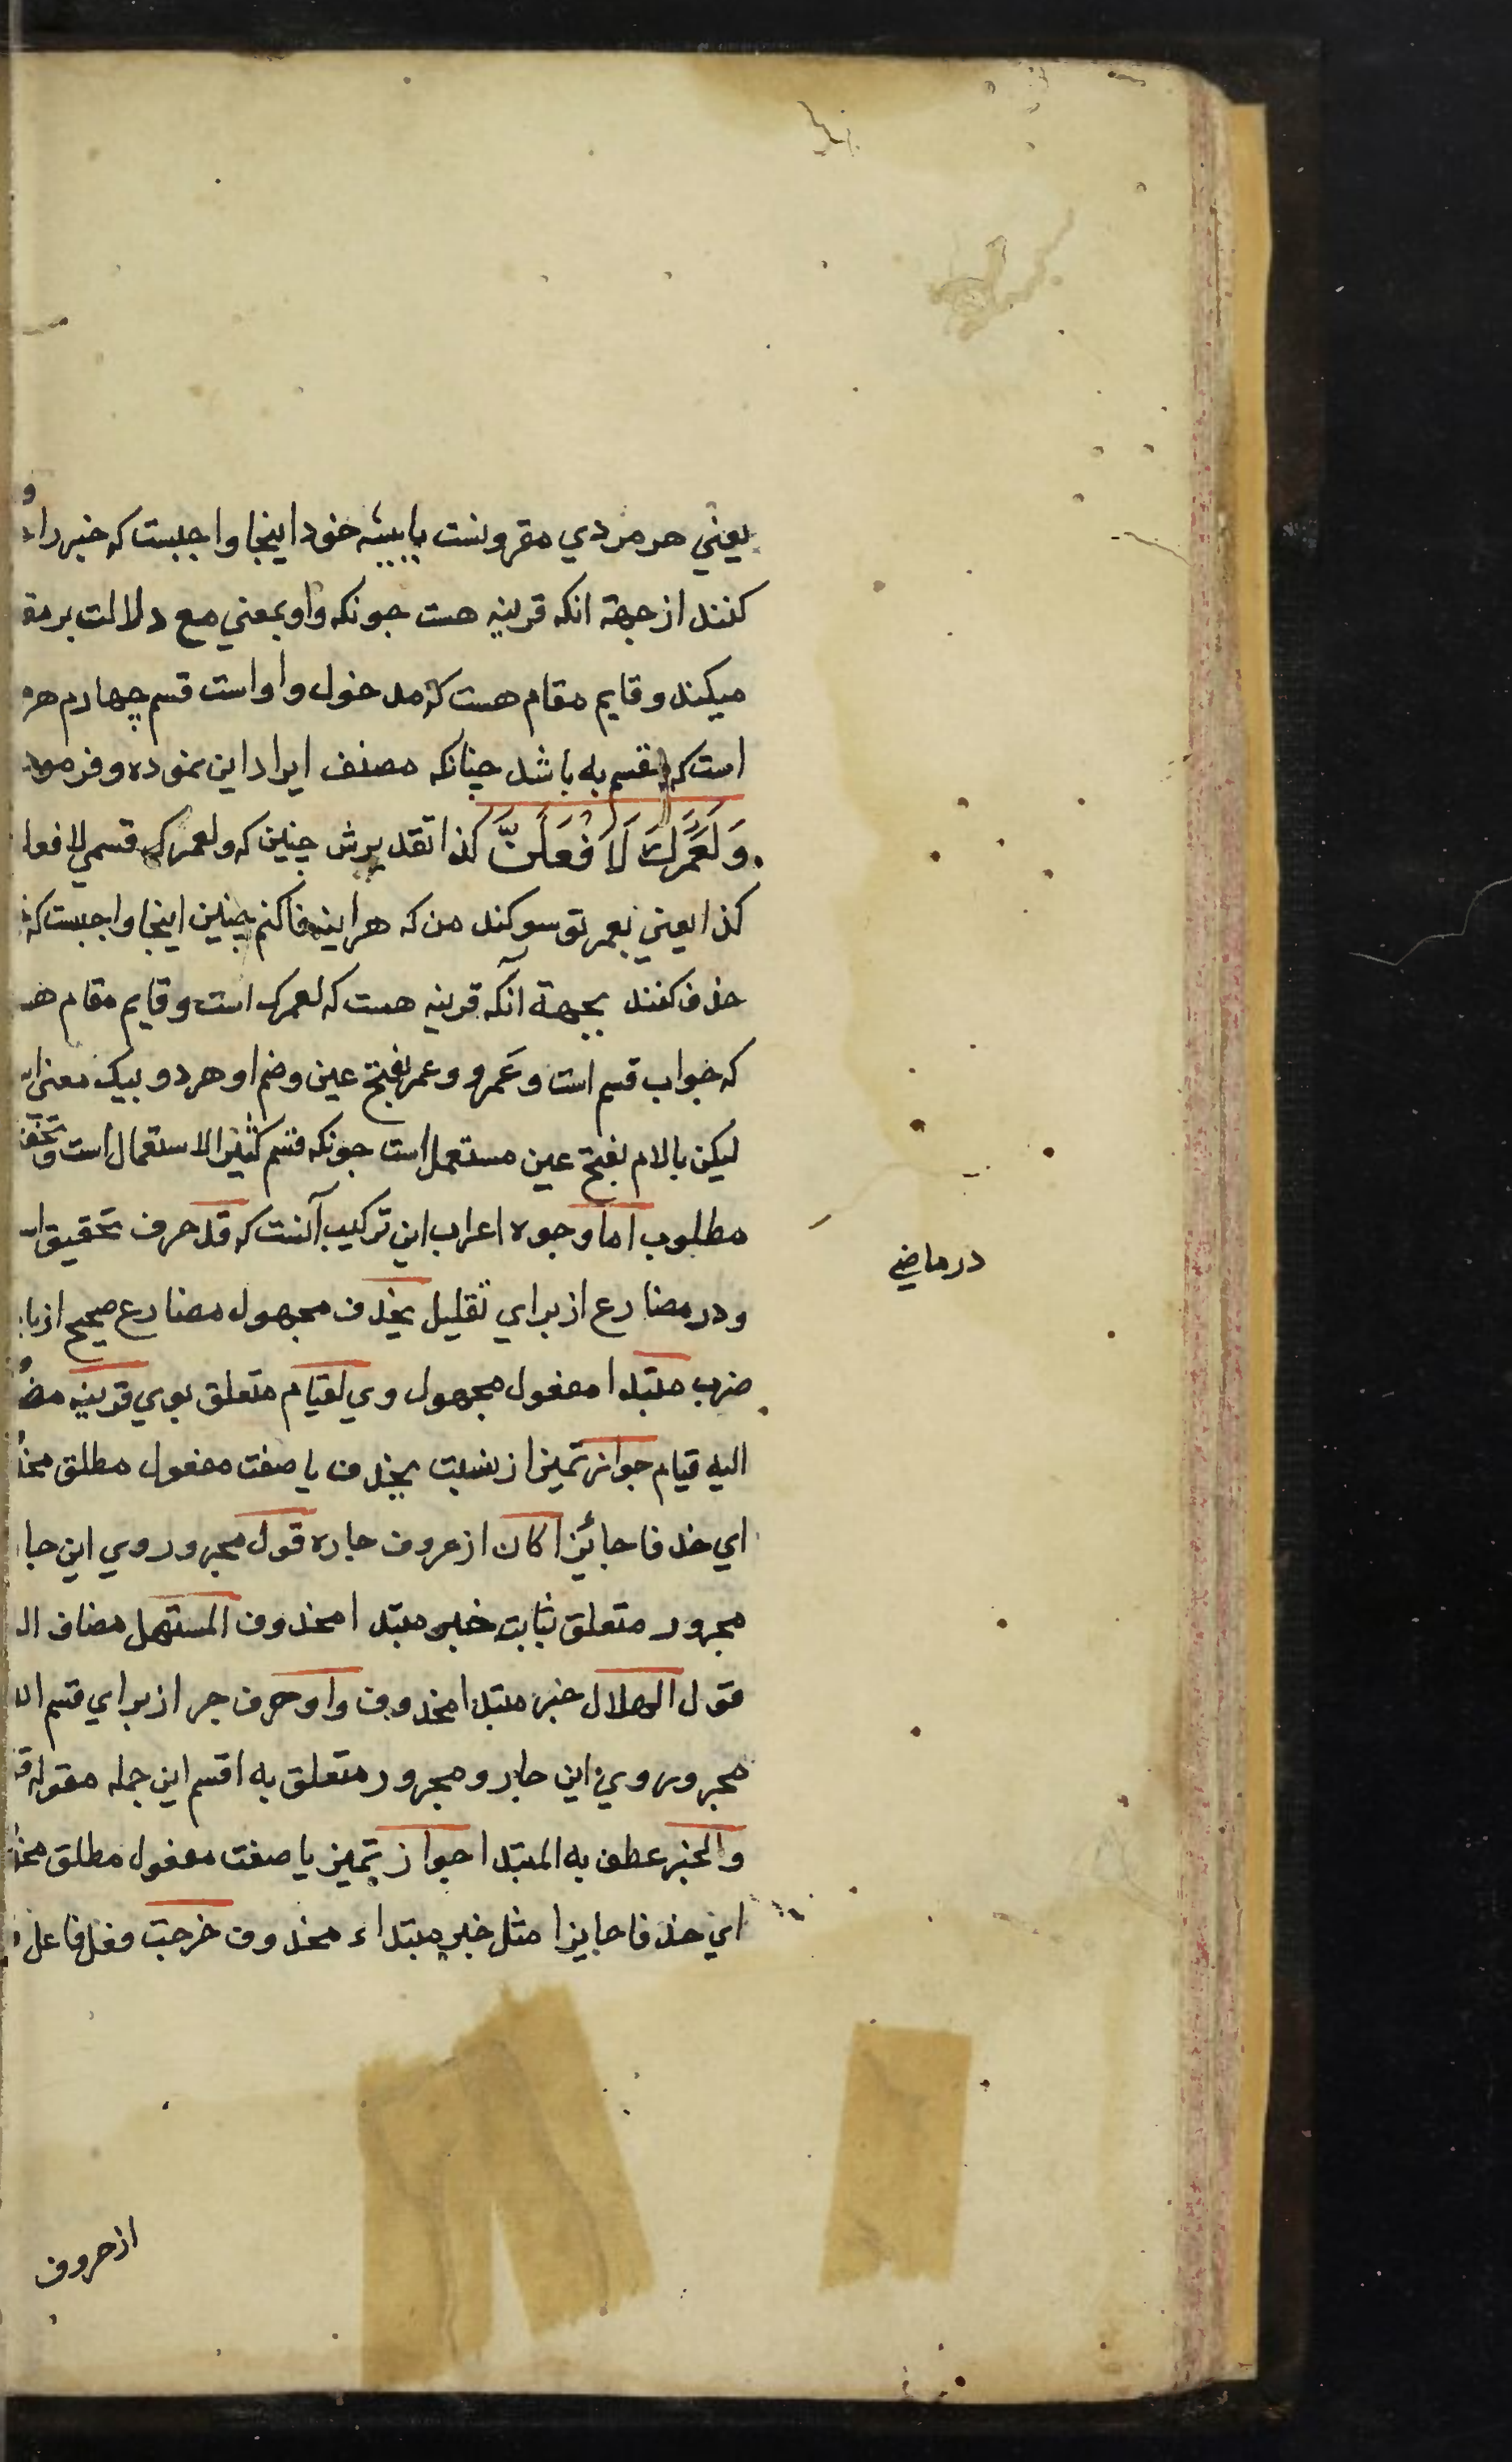 يعني هر مردي مقرونست با پيشه خود اينجا واجبست كه خبر را
كنند از جهة انكه قرينه هست جونكه واو بمعني مع دلالت بر
ميكند و قايم مقام هست كه مدخول واو است قسم چهارم
است كه مقسم به باشد چنانكه مصنف ايراد اين نموده و فرموده
وَلَعَمْرُكَ لَاَفْعَلَنَّ كذا تقديرش چنين كه ولعمرك قسمي لافعلن
كذا يعني بعمر تو سوكند من كه هراينه فاكنم چنين اينجا واجبست كه
حذف كنند بجهة آنكه قرينه هست كه لعمرك است و قايم مقام
كه جواب قسم است و عَمرو و عمر بفتح عين و ضم او هر دو بيك معني
ليكن بالام بفتح عين مستعمل است جونكه قسم كثير الاستعمال است و
مطلوب اما وجوه اعراب اين تركيب آنست كه قد حرف تحقيق
در ماضي
و در مضارع از براي تقليل يحذف مجهول مضارع صحيح از
ضرب مبتدا مفعول مجهول وي لقيام متعلق بوي قرينه
اليه قيام جواز تميز از نسبت يحذف يا صفت مفعول مطلق
اي حذفا جائزا كان از حروف جاره قول مجرور وي اين
مجرور متعلق ثابت خبر مبتدا محذوف المستهل مضاف
قول الهلال خبر مبتدا محذوف واو حرف جر از براي قسم
مجرور وي اين جار و مجرور متعلق به اقسم اين جمله مقوله
والخبر عطف به المبتدا جواز تميز يا صفت مفعول مطلق
اي حذفا جايزا مثل خبر مبتداء محذوف خرجت فعل فاعل
از حروف